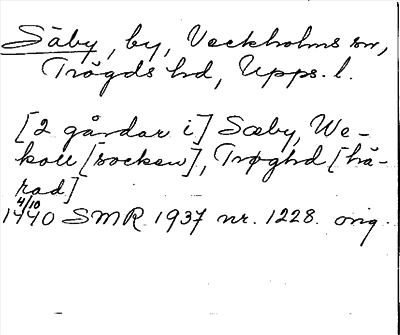 Säby, by, Veckholms sn,
Trögds hd, Upps. l.
[2 gårdar i] Sæby, We-
koll [socken], Trøghd [hä-
rad]
1440 4/10 SMR 1937 nr. 1228. orig.